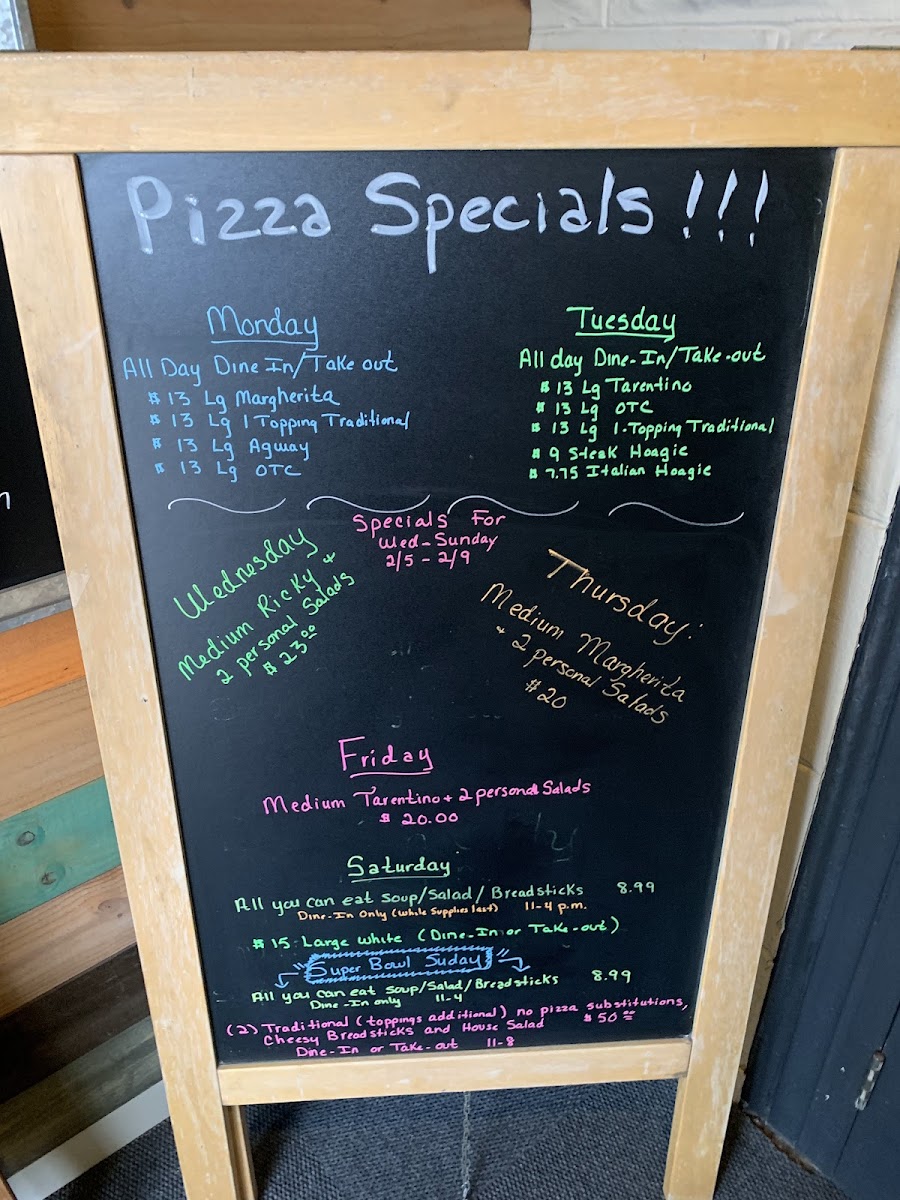 Pizza Specials !!!
Monday
All Day Dine In/Take out
$ 13 Lg Margherita
$ 13 Lg 1 Topping Traditional
$ 13 Lg Agway
$ 13 Lg OTC
Tuesday
All day Dine-In/Take-out
$ 13 Lg Tarentino
$ 13 Lg OTC
$ 13 Lg 1-Topping Traditional
$ 9 Steak Hoagie
$ 7.75 Italian Hoagie
Specials For
Wed-Sunday
2/5 - 2/9
Wednesday
Medium Ricky +
2 personal Salads
$ 23.00
Thursday:
Medium Margherita
+ 2 personal Salads
$20
Friday
Medium Tarentino + 2 personal Salads
$ 20.00
Saturday
All you can eat soup/Salad/Breadsticks 8.99
Dine-In Only (While Supplies last) 11-4 p.m.
$ 15 Large White (Dine-In or Take-out)
"Super Bowl Suday"
All you can eat Soup/Salad/Breadsticks 8.99
Dine-In only 11-4
(2) Traditional (toppings additional) no pizza substitutions,
Cheesy Breadsticks and House Salad $50.00
Dine-In or Take-out 11-8